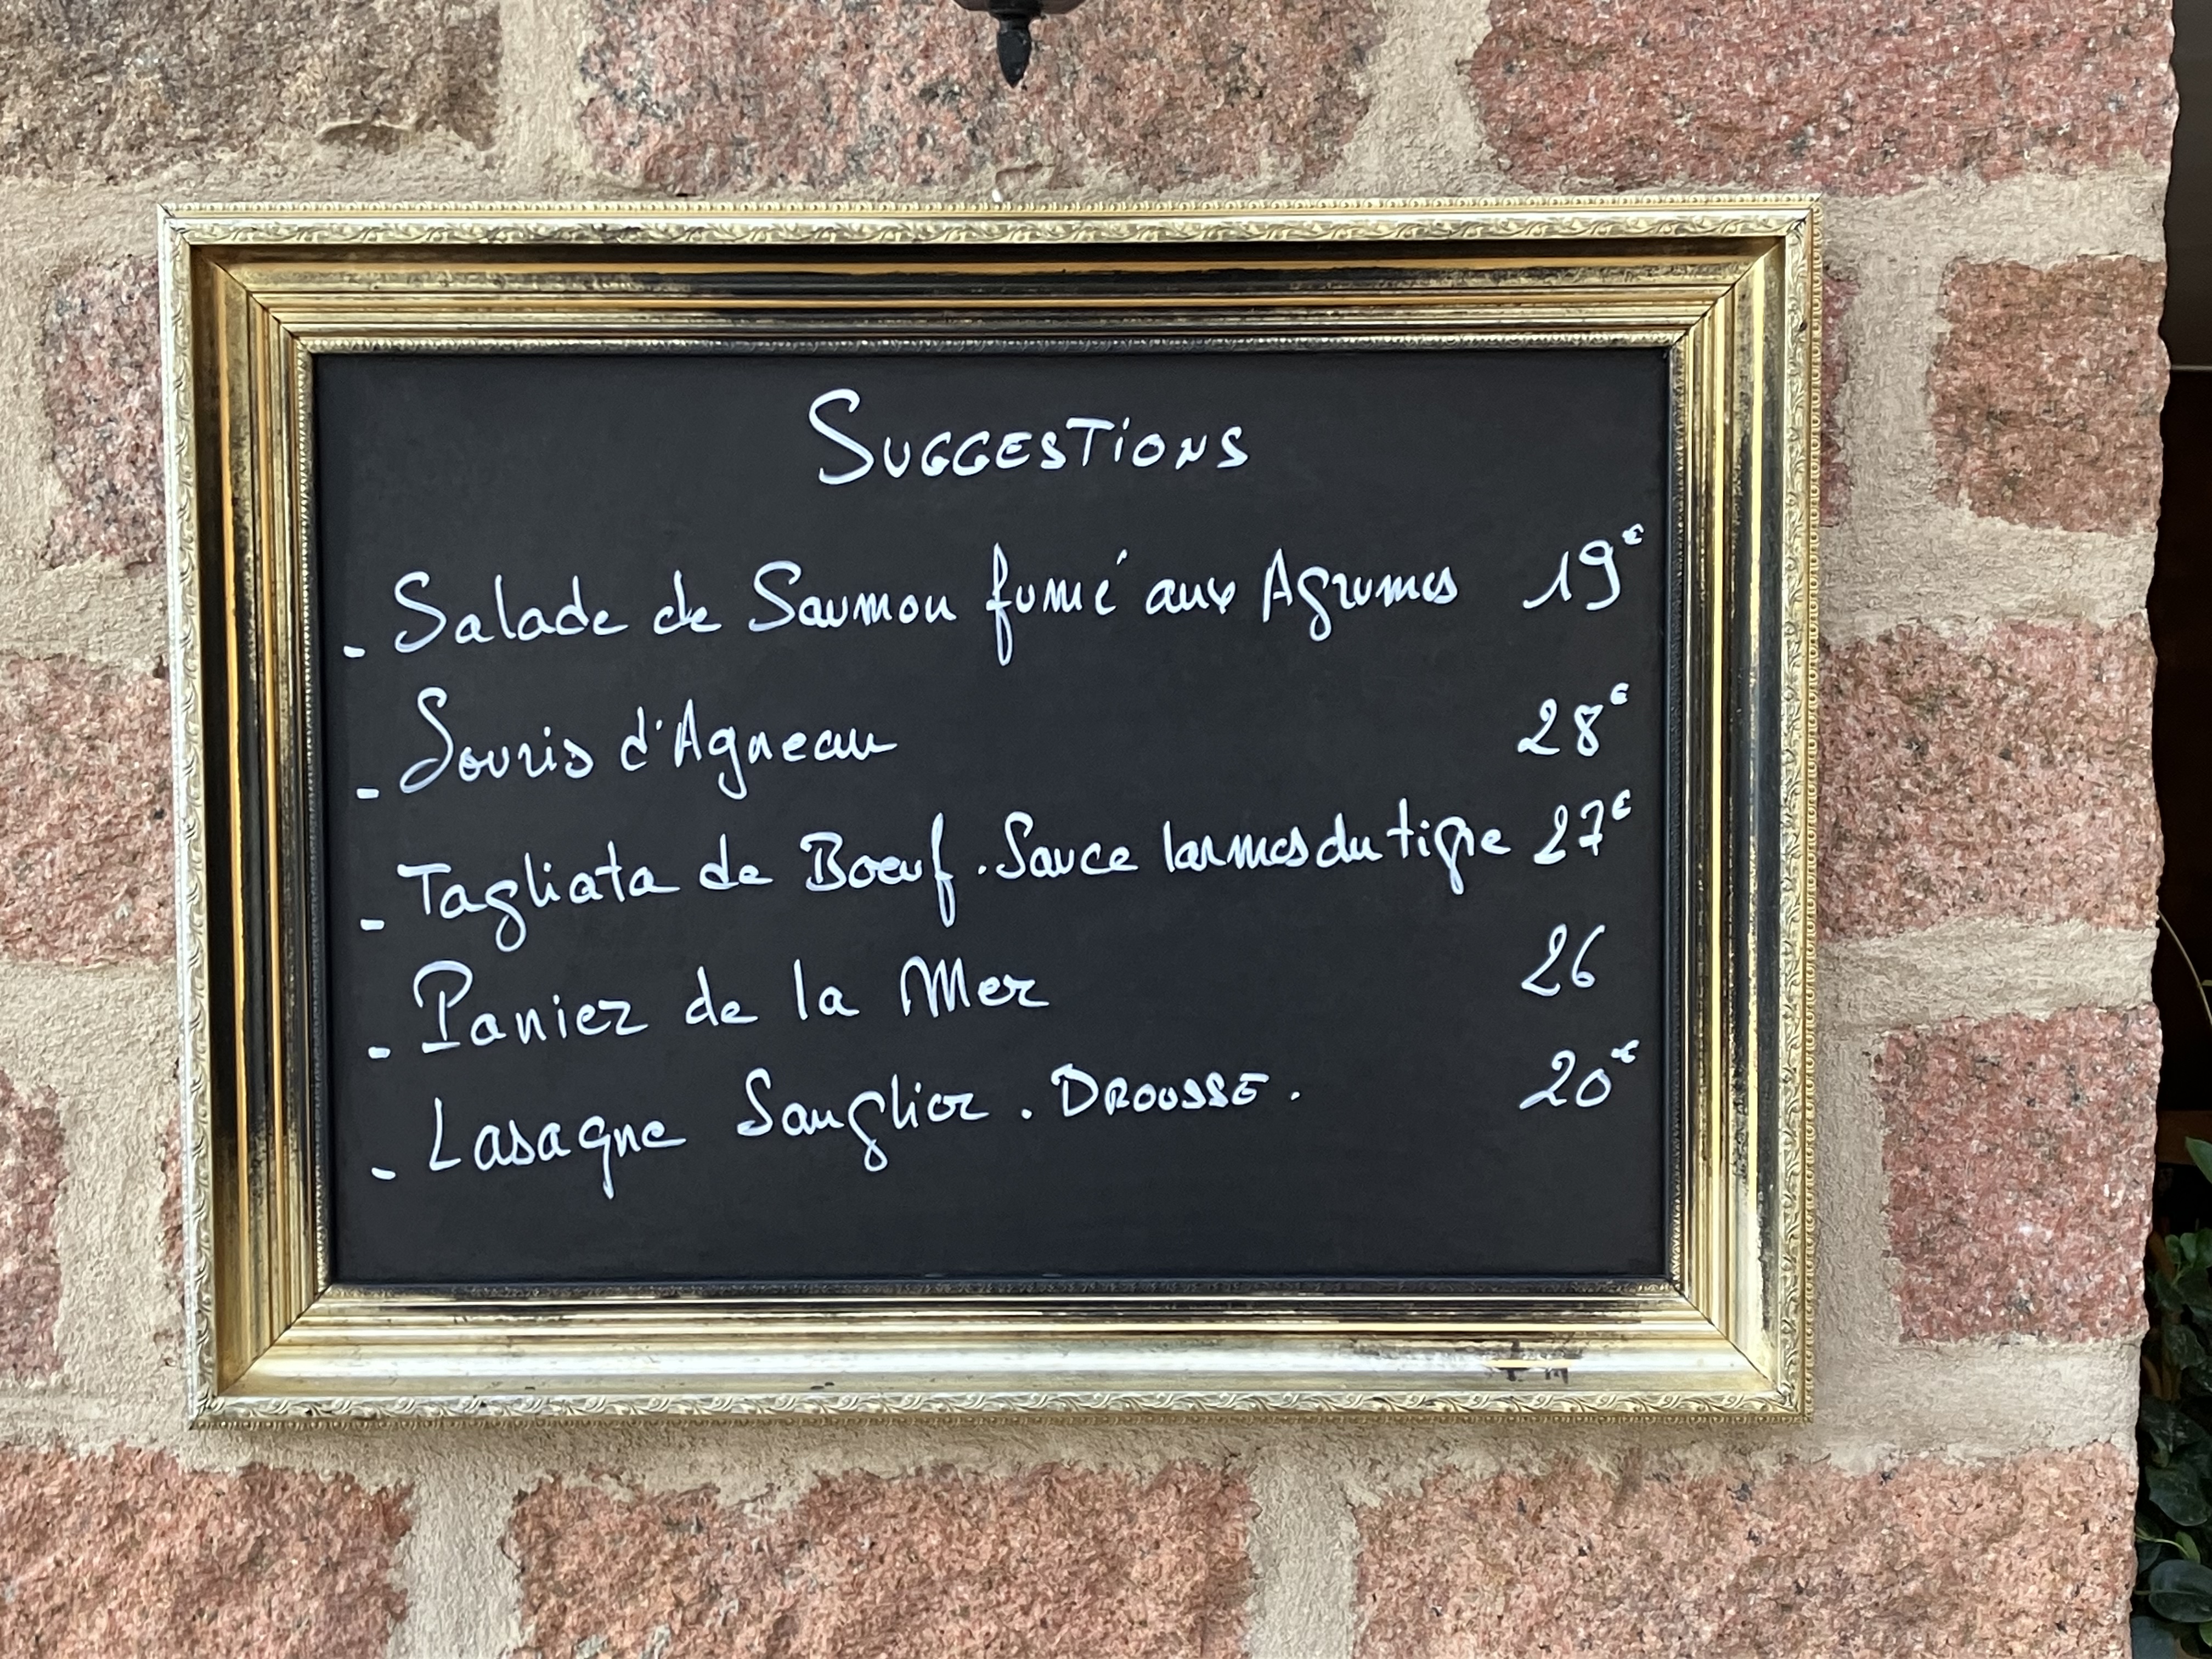 SUGGESTIONS
- Salade de Saumon fumé aux Agrumes 19€
- Souris d'Agneau 28€
- Tagliata de Boeuf. Sauce larmes du tigre 27€
- Panier de la Mer 26
- Lasagne Sanglier. DROUSSE. 20€